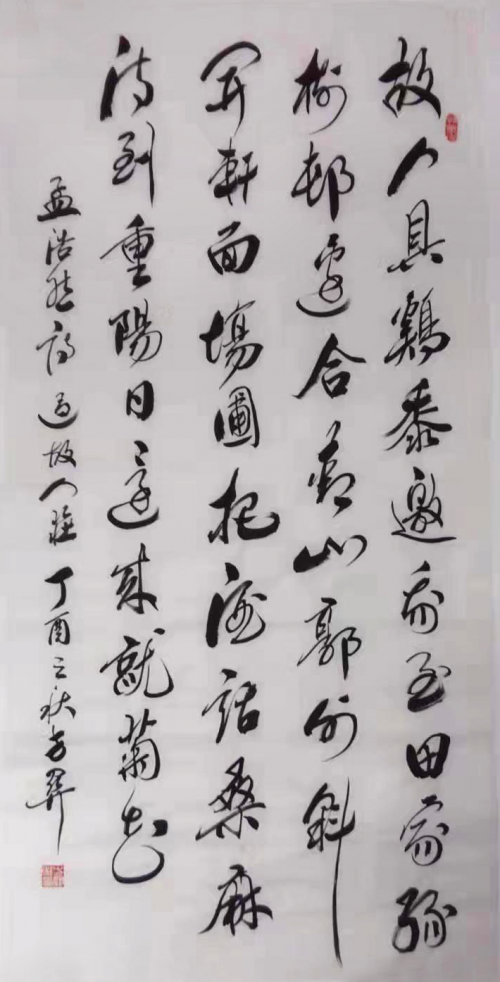 故人具鷄黍邀我至田家綠
樹邨邊合青山郭外斜
開軒面場圃把酒話桑麻
待到重陽日還來就菊花
孟浩然詩過故人莊丁酉之秋